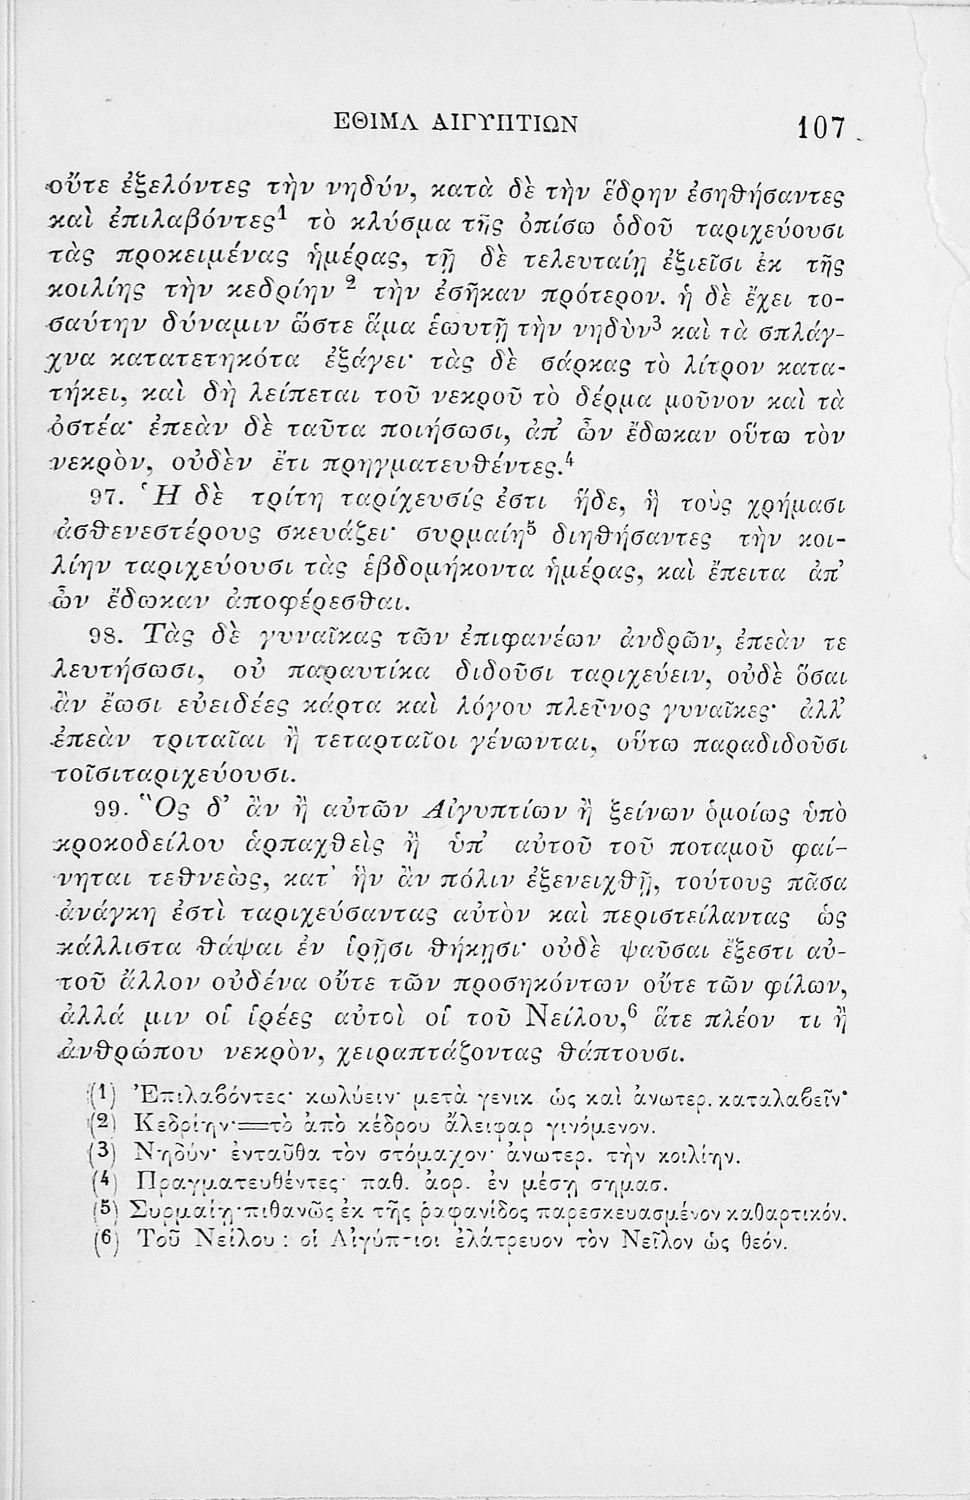 ΕΘΙΜΑ ΑΙΓΥΠΤΙΩΝ 107
οὔτε ἐξελόντες τὴν νηδύν, κατὰ δὲ τὴν ἕδρην ἐσηθήσαντες
καὶ ἐπιλαβόντες¹ τὸ κλύσμα τῆς ὀπίσω ὁδοῦ ταριχεύουσι
τὰς προκειμένας ἡμέρας, τῇ δὲ τελευταίῃ ἐξιεῖσι ἐκ τῆς
κοιλίης τὴν κεδρίην ² τὴν ἐσῆκαν πρότερον. ἡ δὲ ἔχει το-
σαύτην δύναμιν ὥστε ἅμα ἑωυτῇ τὴν νηδὺν³ καὶ τὰ σπλάγ-
χνα κατατετηκότα ἐξάγει· τὰς δὲ σάρκας τὸ λίτρον κατα-
τήκει, καὶ δὴ λείπεται τοῦ νεκροῦ τὸ δέρμα μοῦνον καὶ τὰ
ὀστέα· ἐπεὰν δὲ ταῦτα ποιήσωσι, ἀπ’ ὦν ἔδωκαν οὕτω τὸν
νεκρὸν, οὐδὲν ἔτι πρηγματευθέντες.⁴
97. Ἡ δὲ τρίτη ταρίχευσίς ἐστι ἥδε, ἣ τοὺς χρήμασι
ἀσθενεστέρους σκευάζει· συρμαίῃ⁵ διηθήσαντες τὴν κοι-
λίην ταριχεύουσι τὰς ἑβδομήκοντα ἡμέρας, καὶ ἔπειτα ἀπ’
ὦν ἔδωκαν ἀποφέρεσθαι.
98. Τὰς δὲ γυναῖκας τῶν ἐπιφανέων ἀνδρῶν, ἐπεὰν τε
λευτήσωσι, οὐ παραυτίκα διδοῦσι ταριχεύειν, οὐδὲ ὅσαι
ἂν ἔωσι εὐειδέες κάρτα καὶ λόγου πλεῦνος γυναῖκες· ἀλλ’
ἐπεὰν τριταῖαι ἢ τεταρταῖοι γένωνται, οὕτω παραδιδοῦσι
τοῖσιταριχεύουσι.
99. Ὃς δ’ ἂν ἢ αὐτῶν Αἰγυπτίων ἢ ξείνων ὁμοίως ὑπὸ
κροκοδείλου ἁρπαχθεὶς ἢ ὑπ’ αὐτοῦ τοῦ ποταμοῦ φαί-
νηται τεθνεὼς, κατ’ ἣν ἂν πόλιν ἐξενειχθῇ, τούτους πᾶσα
ἀνάγκη ἐστὶ ταριχεύσαντας αὐτὸν καὶ περιστείλαντας ὡς
κάλλιστα θάψαι ἐν ἱρῇσι θήκῃσι· οὐδὲ ψαῦσαι ἔξεστι αὐ-
τοῦ ἄλλον οὐδένα οὔτε τῶν προσηκόντων οὔτε τῶν φίλων,
ἀλλά μιν οἱ ἱρέες αὐτοὶ οἱ τοῦ Νείλου,⁶ ἅτε πλέον τι ἢ
ἀνθρώπου νεκρὸν, χειραπτάζοντας θάπτουσι.
(1) Ἐπιλαβόντες· κωλύειν· μετὰ γενικ ὡς καὶ ἀνωτερ. καταλαβεῖν·
(2) Κεδρίην·=τὸ ἀπὸ κέδρου ἄλειφαρ γινόμενον.
(3) Νηδύν· ἐνταῦθα τὸν στόμαχον· ἀνωτερ. τὴν κοιλίην.
(4) Πραγματευθέντες· παθ. ἀορ. ἐν μέσῃ σημασ.
(5) Συρμαίῃ·πιθανῶς ἐκ τῆς ῥαφανίδος παρεσκευασμένον καθαρτικόν.
(6) Τοῦ Νείλου : οἱ Αἰγύπτιοι ἐλάτρευον τὸν Νεῖλον ὡς θεόν.